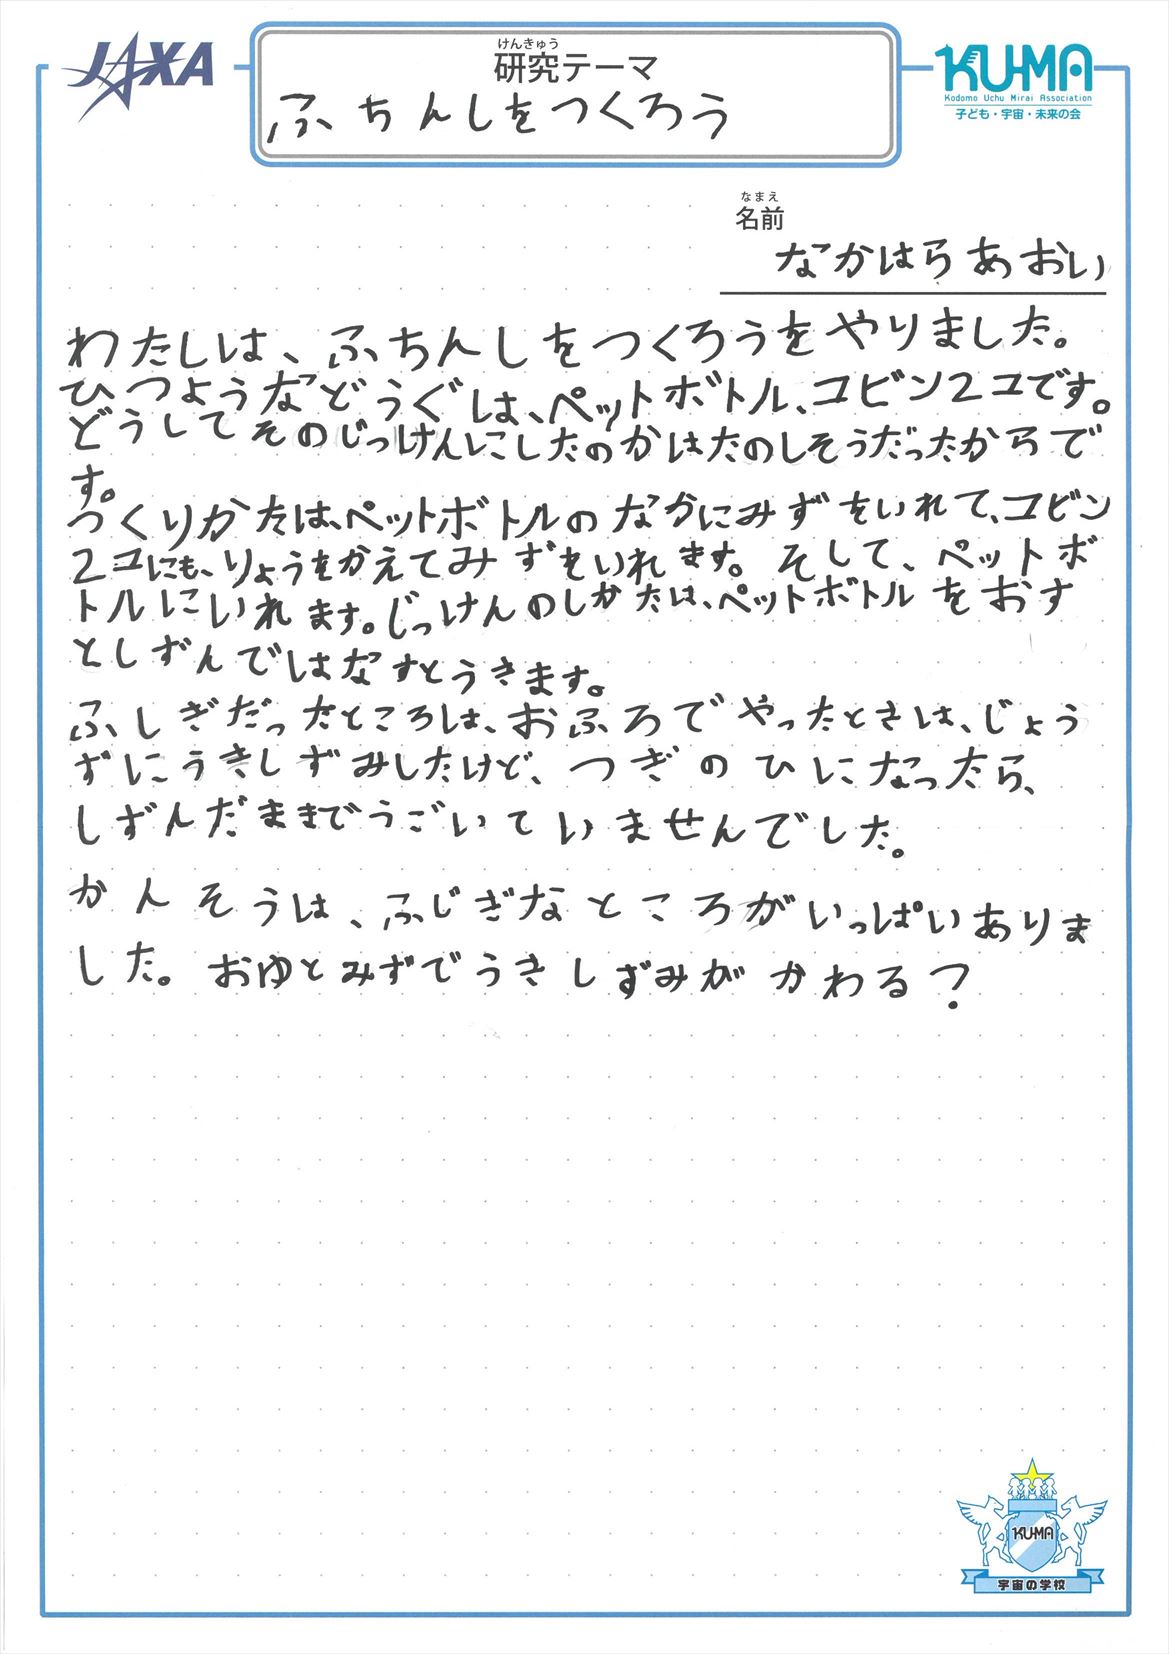 JAXA
けんきゅう
研究テーマ
ふちんしをつくろう
KU-MA
Kodomo Uchu Mirai Association
子ども・宇宙・未来の会
なまえ
名前
なかはらあおい
わたしは、ふちんしをつくろうをやりました。
ひつようなどうぐは、ペットボトル、コビン2コです。
どうしてそのじっけんにしたのかはたのしそうだったからで
す。
つくりかたは、ペットボトルのなかにみずをいれて、コビン
2コにも、りょうをかえてみずをいれます。そして、ペットボ
トルにいれます。じっけんのしかたは、ペットボトルをおす
としずんではなすとうきます。
ふしぎだったところは、おふろでやったときは、じょう
ずにうきしずみしたけど、つぎのひになったら、
しずんだままでうごいていませんでした。
かんそうは、ふじぎなところがいっぱいありま
した。おゆとみずでうきしずみがかわる?
KU-MA
宇宙の学校